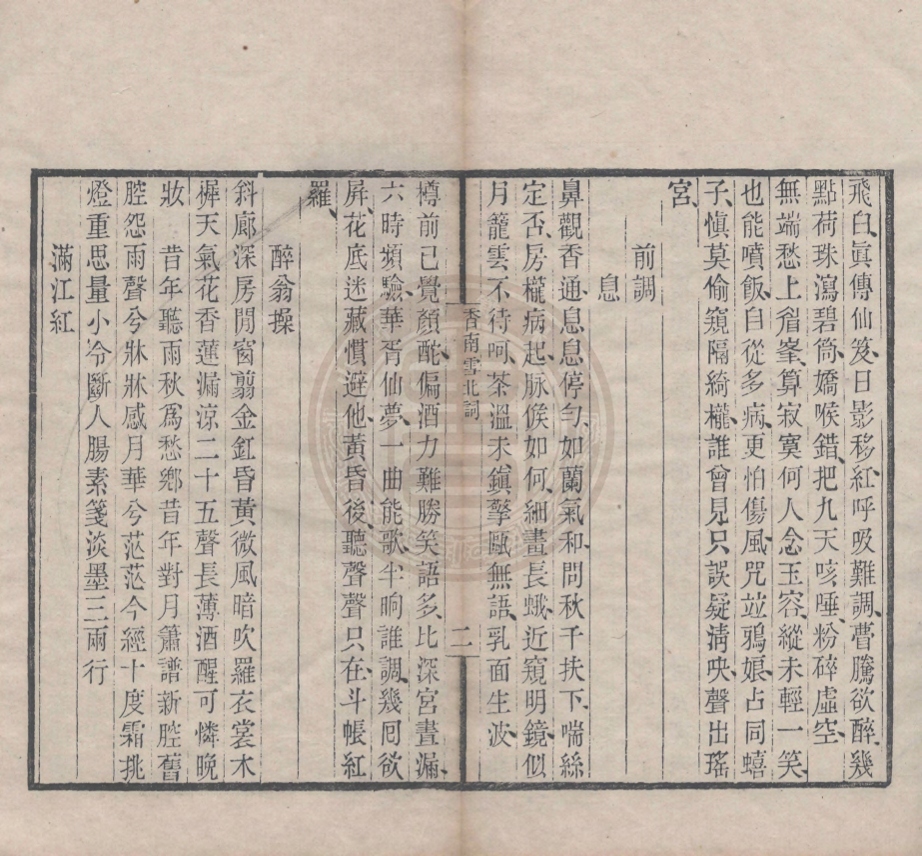 飛白、眞傳仙笈、日影移紅、呼吸難調、瞢騰欲醉、幾
點荷珠瀉碧筒、嬌喉錯、把九天咳唾、粉碎虛空、
無端愁上眉峯、算寂寞何人念玉容、縱未輕一笑、
也能噴飯、自從多病、更怕傷風、咒竝鴉娘、占同蟢
子、愼莫偷窺隔綺櫳、誰曾見、只誤疑淸吷、聲出瑤
宮、
前調
息
鼻觀香通、息息停勻、如蘭氣和、問秋千扶下、喘絲
定否、房櫳病起、脉候如何、細畫長蛾、近窺明鏡、似
月籠雲、不待呵、茶溫未、鎭擎甌無語、乳面生波、
香南雪北詞
二
樽前已覺顏酡、偏酒力難勝笑語多、比深宮晝漏、
六時頻驗、華胥仙夢、一曲能歌、半晌誰調、幾回欲
屛、花底迷藏慣避他、黃昏後、聽聲聲只在、斗帳紅
羅、
醉翁操
斜廊深房閒窗翦金釭昏黃微風暗吹羅衣裳木
樨天氣花香蓮漏涼二十五聲長薄酒醒可憐晚
妝　昔年聽雨秋爲愁鄉昔年對月簫譜新腔舊
腔怨雨聲兮牀牀感月華兮茫茫今經十度霜挑
燈重思量小令斷人腸素箋淡墨三兩行
滿江紅